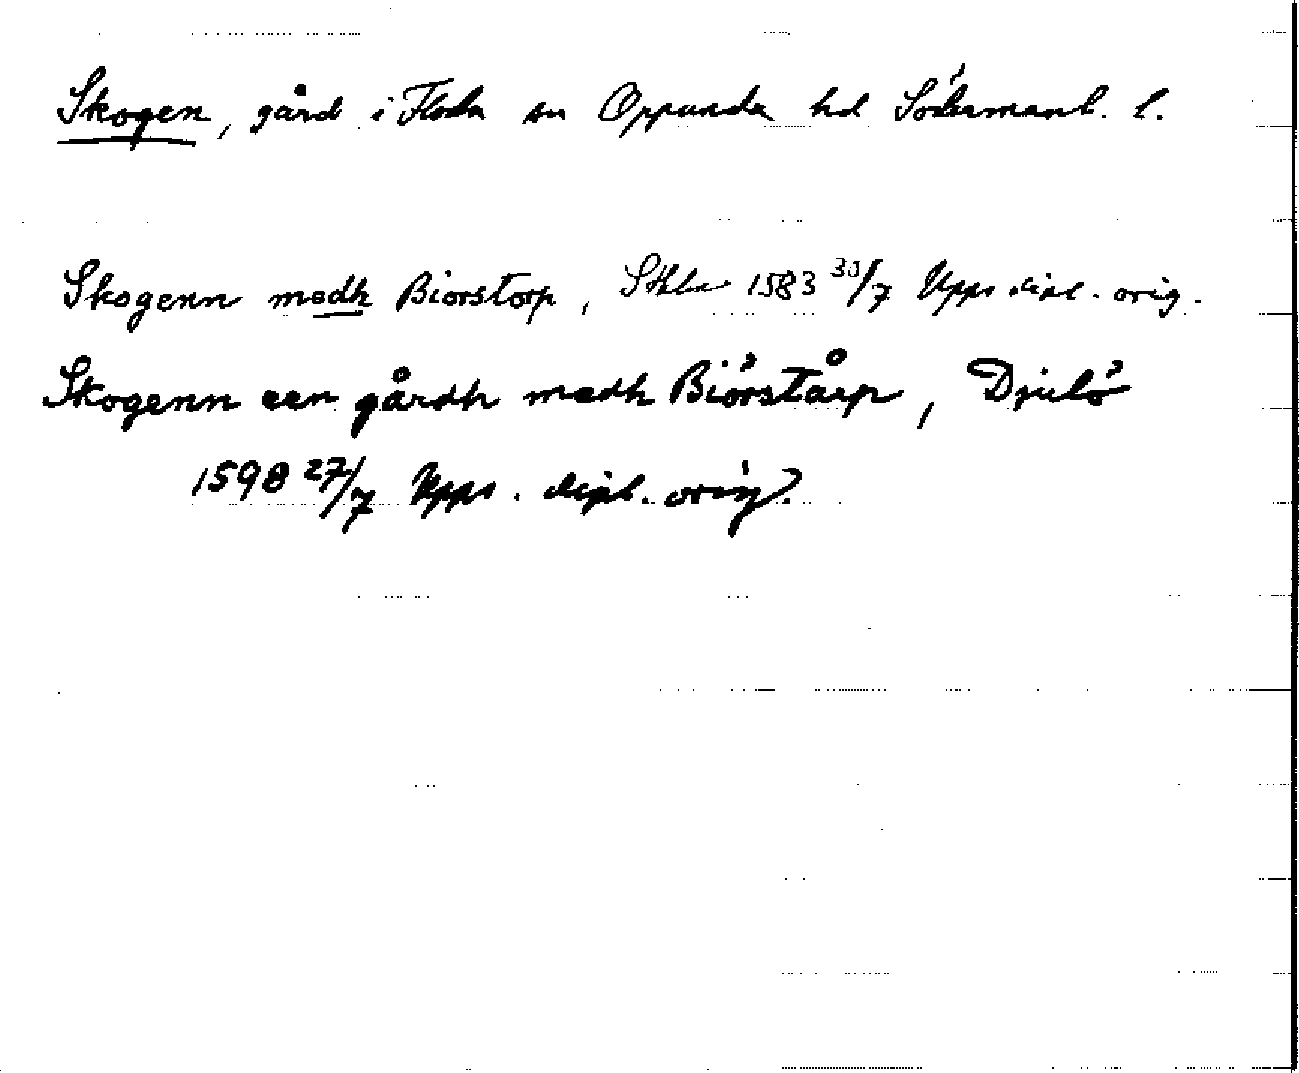 Skogen, gård i Floda sn Oppunda hd Södermanl. l.
Skogenn medh Biorstorp, Sthlm 1583 30/7 Upps. dipl. orig.
Skogenn een gårdh medh Biörstårp, Djulö
1598 27/7 Upps. dipl. orig.